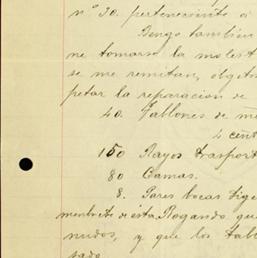 nº 30. perteneciente a
Tengo tambien
me tomarse la molest
se me remitan, objeto
petar la reparacion de
40. Tablones de m
4 cent
150 Rayos trasport
80 Camas.
8. Pares bocas tige
membrete de esta Rogando que
nudos, y que los tabl
sado